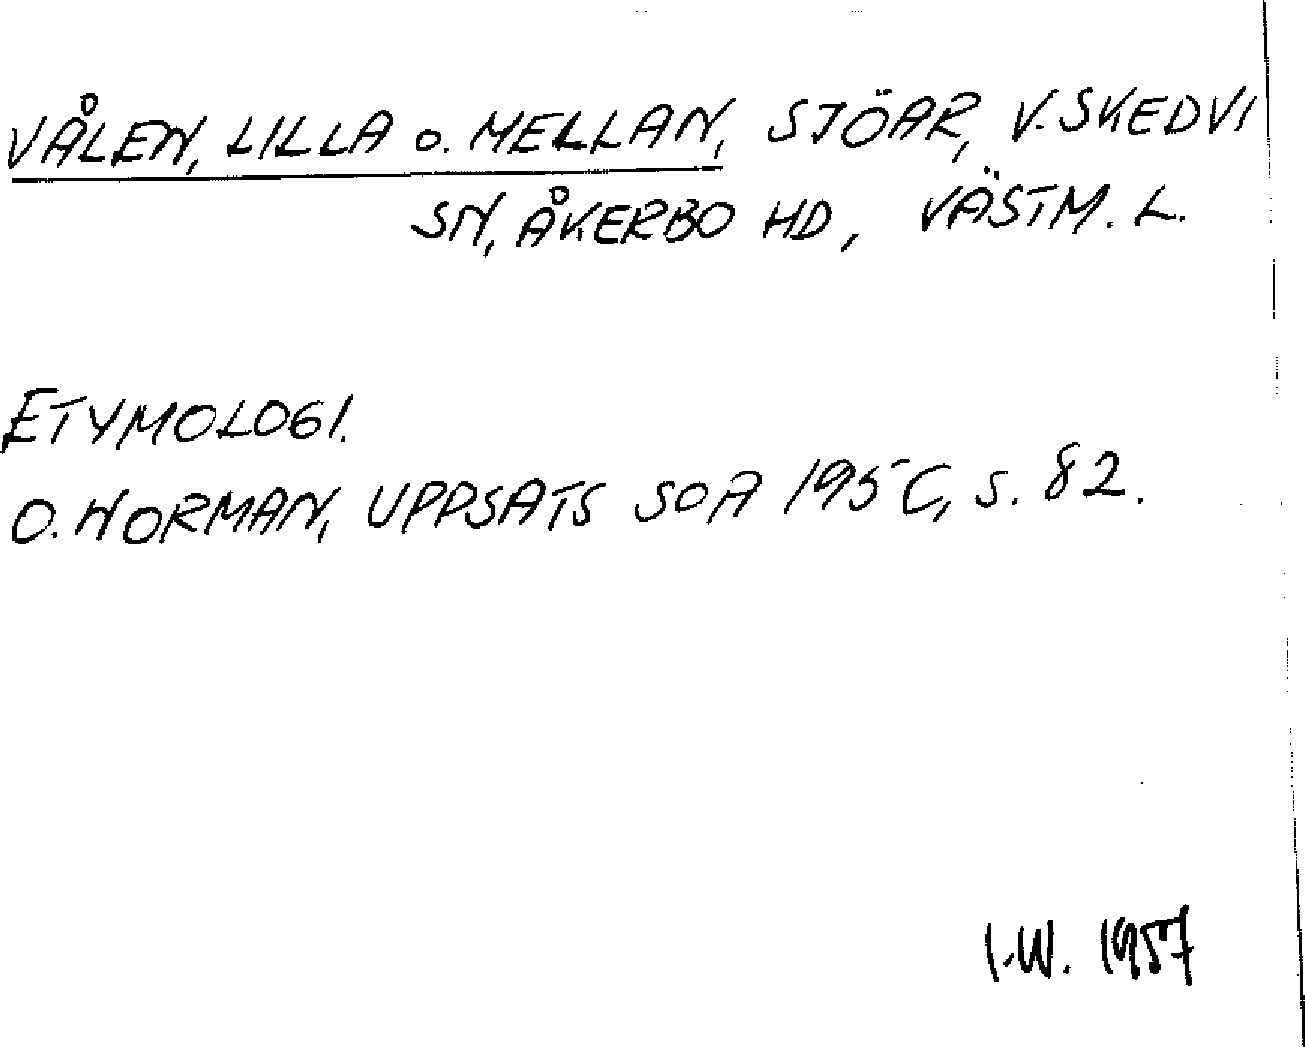 VÅLEN, LILLA o. MELLAN, SJÖAR, V. SKEDVI
SN, ÅKERBO HD, VÄSTM. L.
ETYMOLOGI.
O. NORMAN, UPPSATS SOA 195C, s. 82.
I.W. 1957